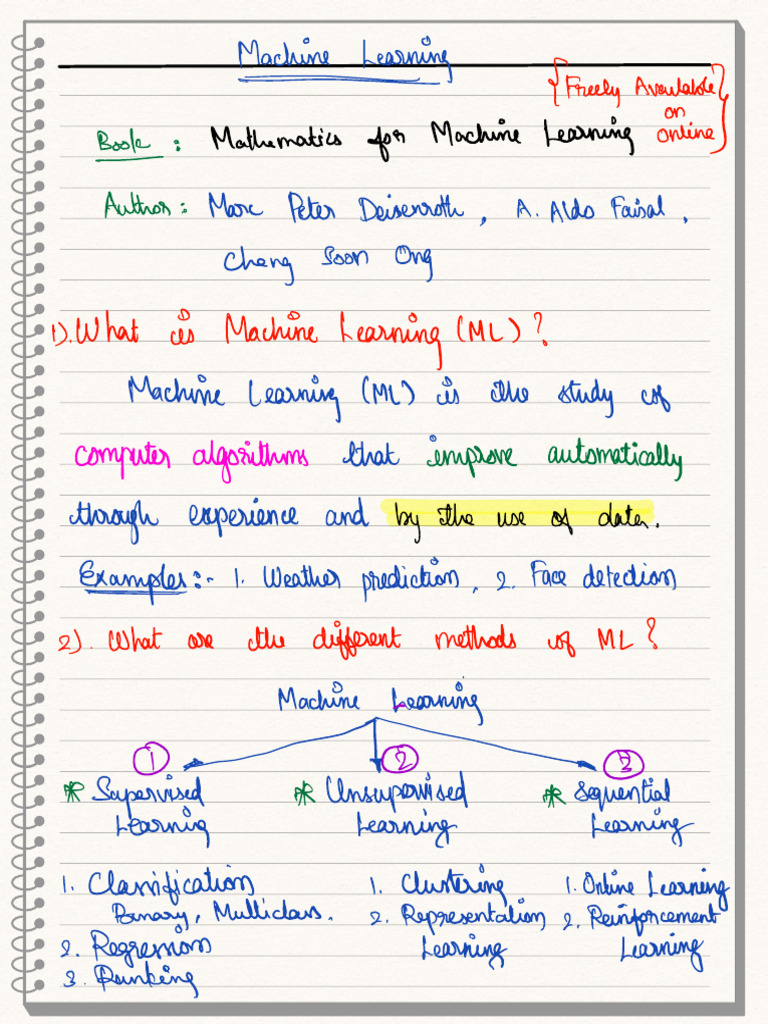 Machine Learning
{Freely Available on online}
Book : Mathematics for Machine Learning
Author : Marc Peter Deisenroth, A. Aldo Faisal,
Cheng Soon Ong
1). What is Machine Learning (ML)?
Machine Learning (ML) is the study of
computer algorithms that improve automatically
through experience and by the use of data.
Examples:- 1. Weather prediction, 2. Face detection
2). What are the different methods of ML?
Machine Learning
1 2 3
* Supervised Learning
* Unsupervised Learning
* Sequential Learning
1. Classification
Binary, Multiclass.
2. Regression
3. Ranking
1. Clustering
2. Representation
Learning
1. Online Learning
2. Reinforcement
Learning